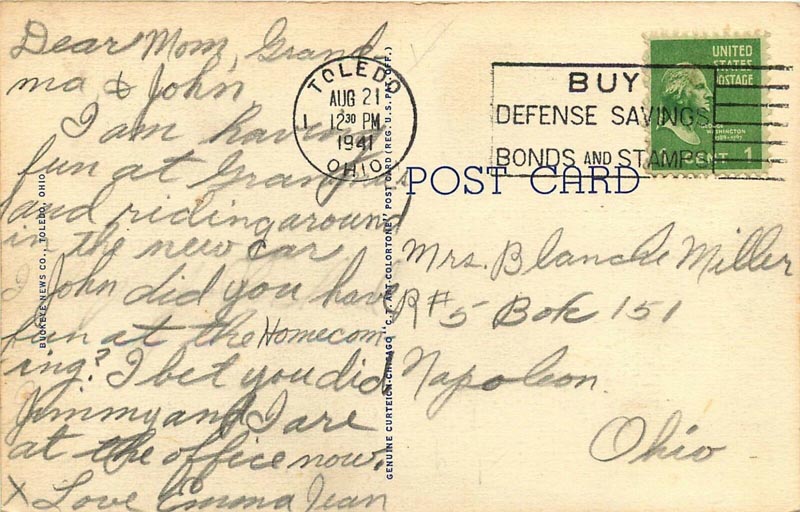 Dear Mom, Grand
ma & John
I am having
fun at Grandpas
and riding around
in the new car
John did you have
fun at the Homecom
ing? I bet you did
Jimmy and I are
at the office now.
X Love Emma Jean
BUCKEYE NEWS CO., TOLEDO, OHIO
GENUINE CURTEICH-CHICAGO "C.T. ART-COLORTONE" POST CARD (REG. U.S. PAT. OFF.)
TOLEDO
AUG 21
12 30 PM
1941
OHIO
1
BUY
DEFENSE SAVINGS
BONDS AND STAMPS
UNITED
STATES
POSTAGE
GEORGE
WASHINGTON
1789-1797
1 CENT 1
POST CARD
Mrs. Blanche Miller
R#5 Box 151
Napoleon.
Ohio